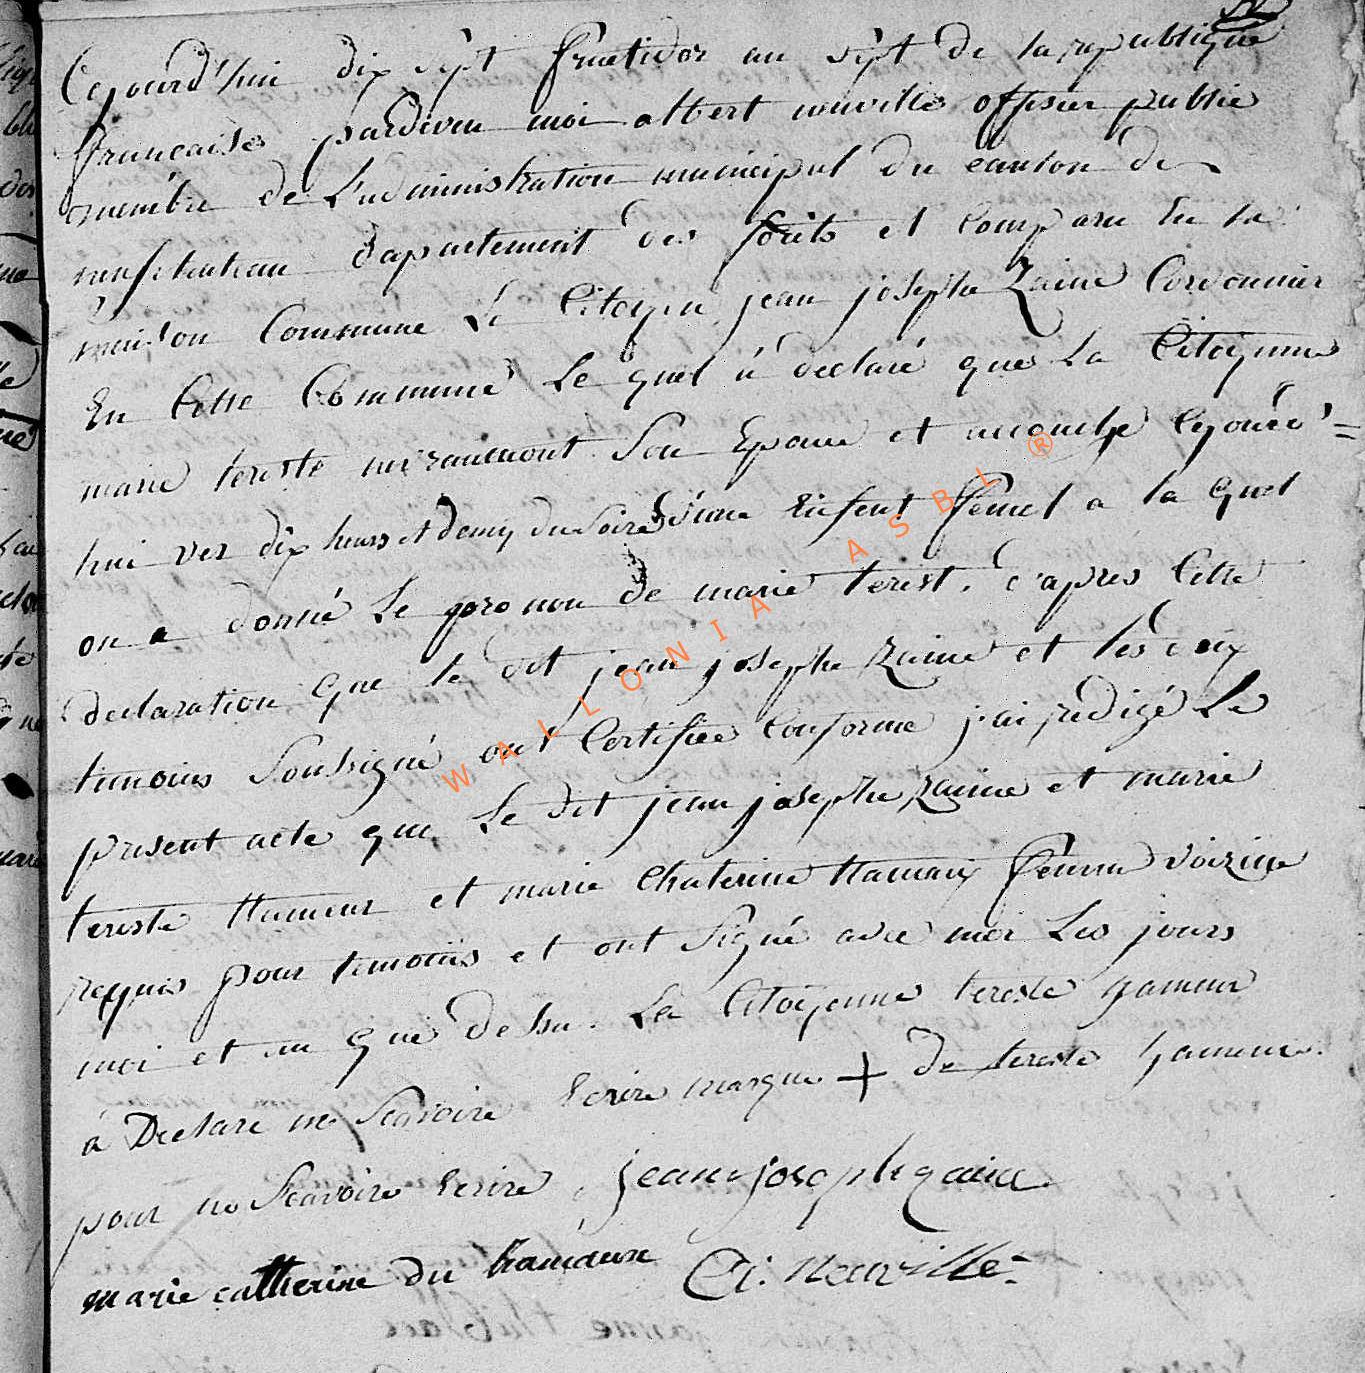 Cejourd'hui dix sept fructidor an sept de la republique
française pardeven moi albert neuville offisier publie
membre de L'administration municipal du canton de
neufchateau dapartement des forêts et comparu En la
maison Commune Le Citoyen jean josephe Zaine Cordonnier
En Cette Commune Le quel à declaré que La Citoyenne
marie tereste Son Epouse et accouche Cejourd'=
hui ver dix heurs et demy du Soire d'une Enfent femel a la quel
on a donné Le prenom de marie terist. d'après Cette
declaration que le dit jean josephe Zaine et les deux
temoins Soussigné ont Certifiée Conforme j'ai redigé Le
present acte que Le dit jean josephe Zaine et marie
tereste Hameur et marie Chaterine Hamaux femme voizine
requis pour temoins et ont Signé avec moi Les jours
moi et an que dessu. La Citoyenne tereste gameur
à Declare ne Scavoire Ecrire marque + de tereste hameur
pour ne Scavoire Ecrire, jean joseph zaine
marie catherine du hamause A: Neuville
WALLONIA ASBL ®